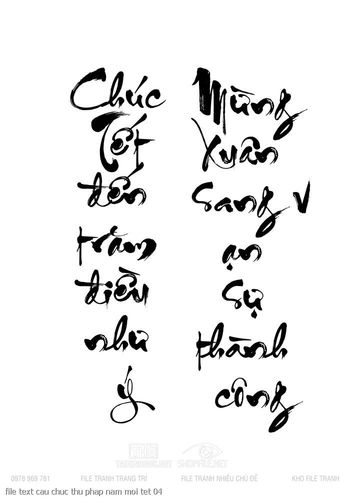 Chúc
Tết
đến
trăm
điều
như
ý
Mừng
Xuân
sang v
ạn
sự
thành
công
SHOPFILE.NET
0978 869 761 FILE TRANH TRANG TRÍ FILE TRANH NHIỀU CHỦ ĐỀ KHO FILE TRANH
file text cau chuc thu phap nam moi tet 04